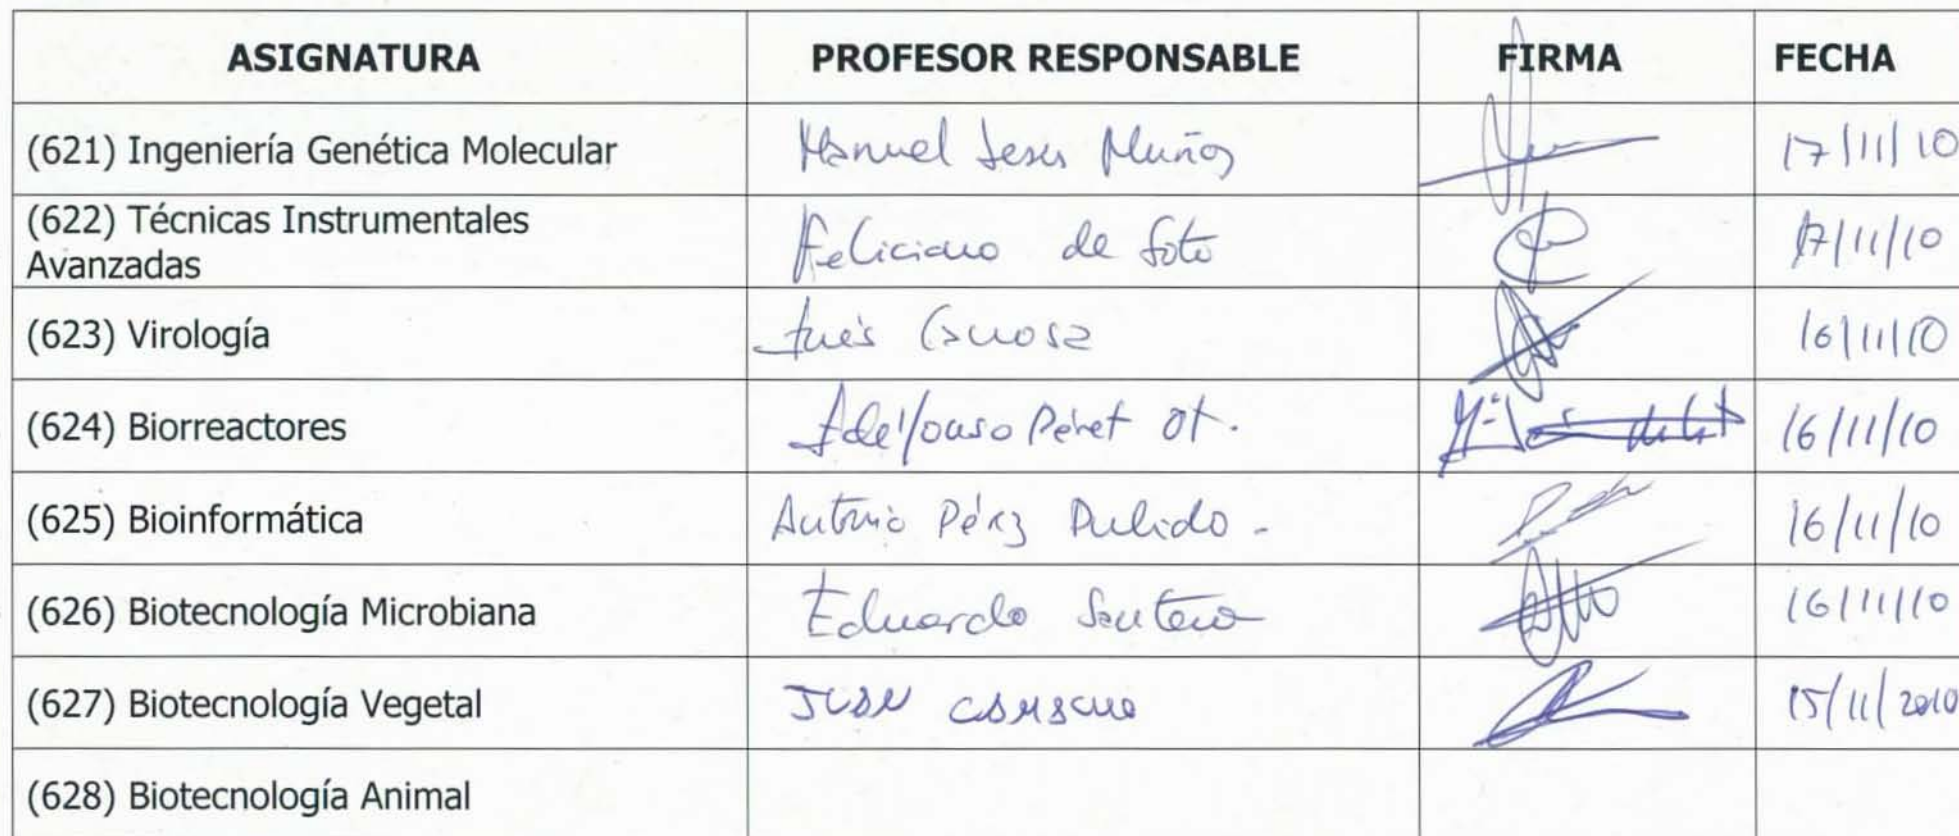 ASIGNATURA PROFESOR RESPONSABLE FIRMA FECHA
(621) Ingeniería Genética Molecular Manuel Jesús Muñoz 17/11/10
(622) Técnicas Instrumentales
Avanzadas Feliciano de Soto 17/11/10
(623) Virología Inés Canosa 16/11/10
(624) Biorreactores Ildefonso Pérez Ot. 16/11/10
(625) Bioinformática Antonio Pérez Pulido - 16/11/10
(626) Biotecnología Microbiana Eduardo Santero 16/11/10
(627) Biotecnología Vegetal JUAN 15/11/2010
(628) Biotecnología Animal